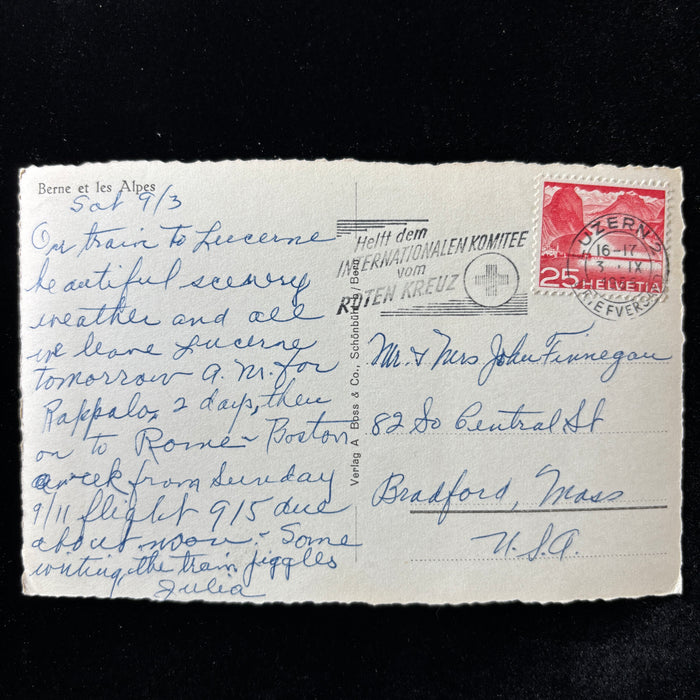 Berne et les Alpes
Sat 9/3
On train to Lucerne
beautiful scenery
weather and all
we leave Lucerne
tomorrow A.M. for
Rappalo, 2 days, then
on to Rome - Boston
a week from Sunday
9/11 flight 915 due
about noon - Some
writing, the train jiggles
Julia
Verlag A Boss & Co., Schönbühl / Bern
Helft dem
INTERNATIONALEN KOMITEE
vom
ROTEN KREUZ
LUZERN 2
16-17
3. IX
BRIEFVERS
25 HELVETIA
Mr. & Mrs John Finnegan
82 So Central St
Bradford, Mass
U.S.A.